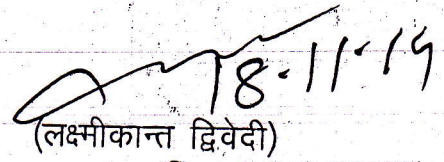 18-11-14
(लक्ष्मीकान्त द्विवेदी)